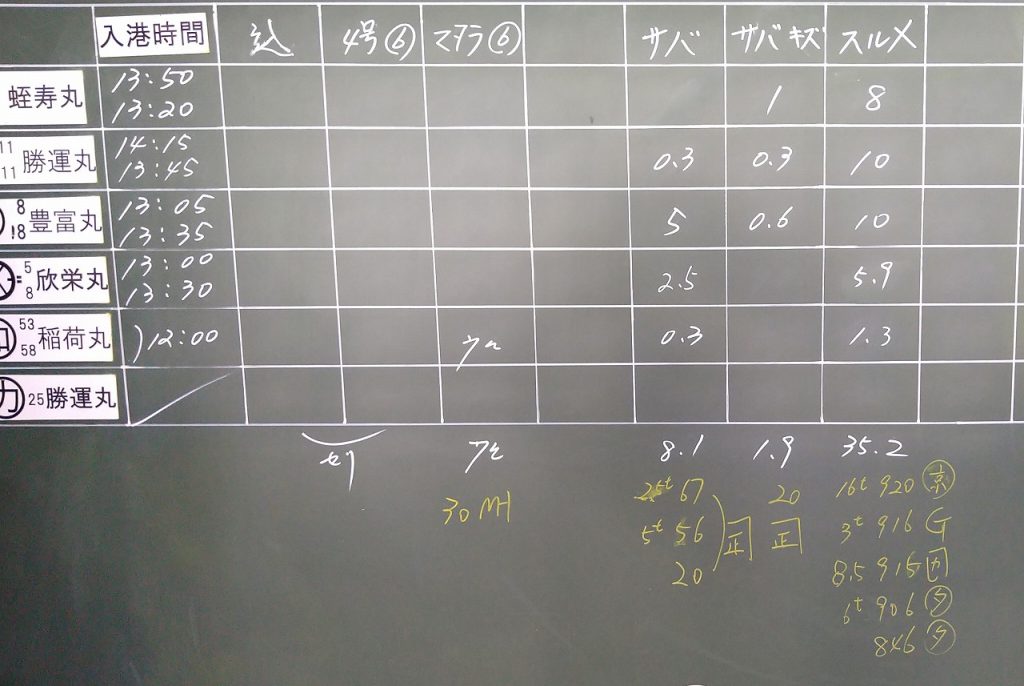 入港時間 込 4号⑥ マダラ⑥ サバ サバキズ スルメ
蛭寿丸 13:50 13:20 1 8
11 11 勝運丸 14:15 13:45 0.3 0.3 10
8 18 豊富丸 13:05 13:35 5 0.6 10
5 8 欣栄丸 13:00 13:30 2.5 5.9
53 58 稲荷丸 12:00 0.3 1.3
25 勝運丸
セリ 8.1 1.9 35.2
67 20 16t 920 京
30
5t 56 正 正 3t 916
20 8.5 915 カ
6t 906 タ
846 タ